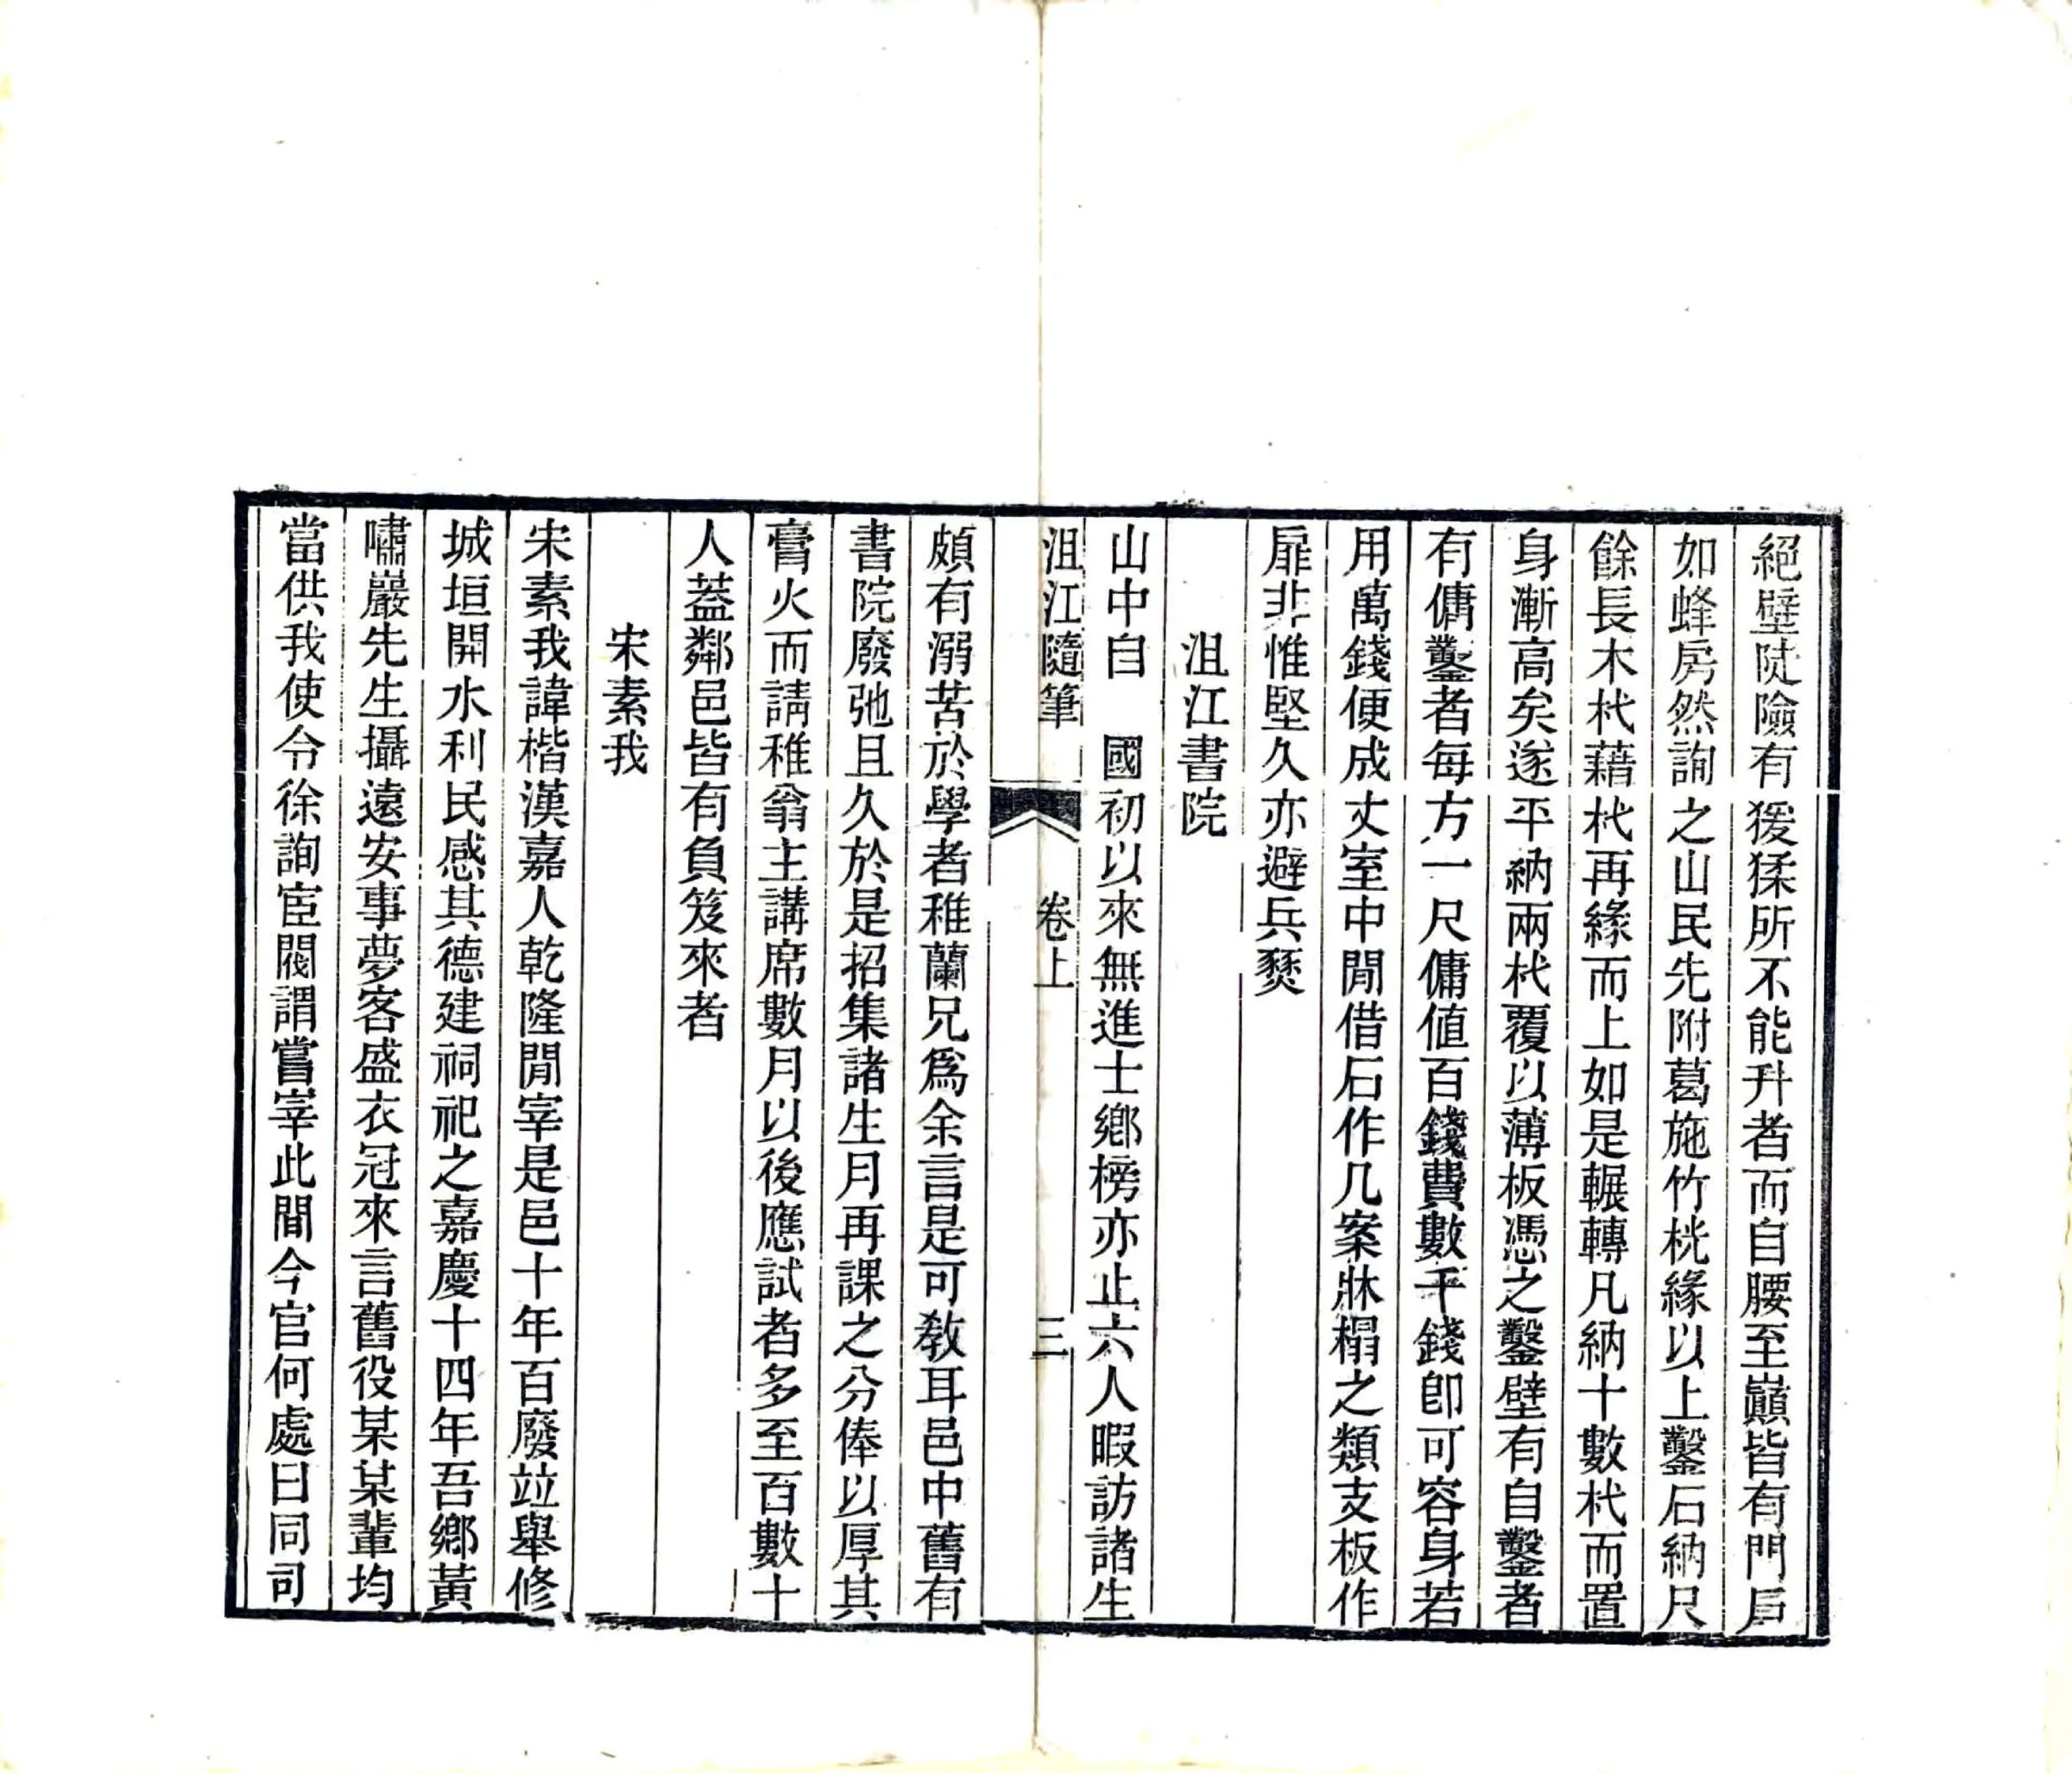 絕壁陡險有猨猱所不能升者而自腰至巔皆有門戶
如蜂房然詢之山民先附葛施竹桄緣以上鑿石納尺
餘長木杙藉杙再緣而上如是輾轉凡納十數杙而置
身漸高矣遂平納兩杙覆以薄板憑之鑿壁有自鑿者
有傭鑿者每方一尺傭値百錢費數千錢卽可容身若
用萬錢便成丈室中閒借石作几案牀榻之類支板作
扉非惟堅久亦避兵燹
沮江書院
山中自　國初以來無進士鄉榜亦止六人暇訪諸生
沮江隨筆　卷上　三
頗有溺苦於學者稚蘭兄爲余言是可敎耳邑中舊有
書院廢弛且久於是招集諸生月再課之分俸以厚其
膏火而請稚翁主講席數月以後應試者多至百數十
人蓋鄰邑皆有負笈來者
宋素我
宋素我諱楷漢嘉人乾隆閒宰是邑十年百廢竝舉修
城垣開水利民感其德建祠祀之嘉慶十四年吾鄉黃
嘯巖先生攝遠安事夢客盛衣冠來言舊役某某輩均
當供我使令徐詢宦閥謂嘗宰此間今官何處曰同司